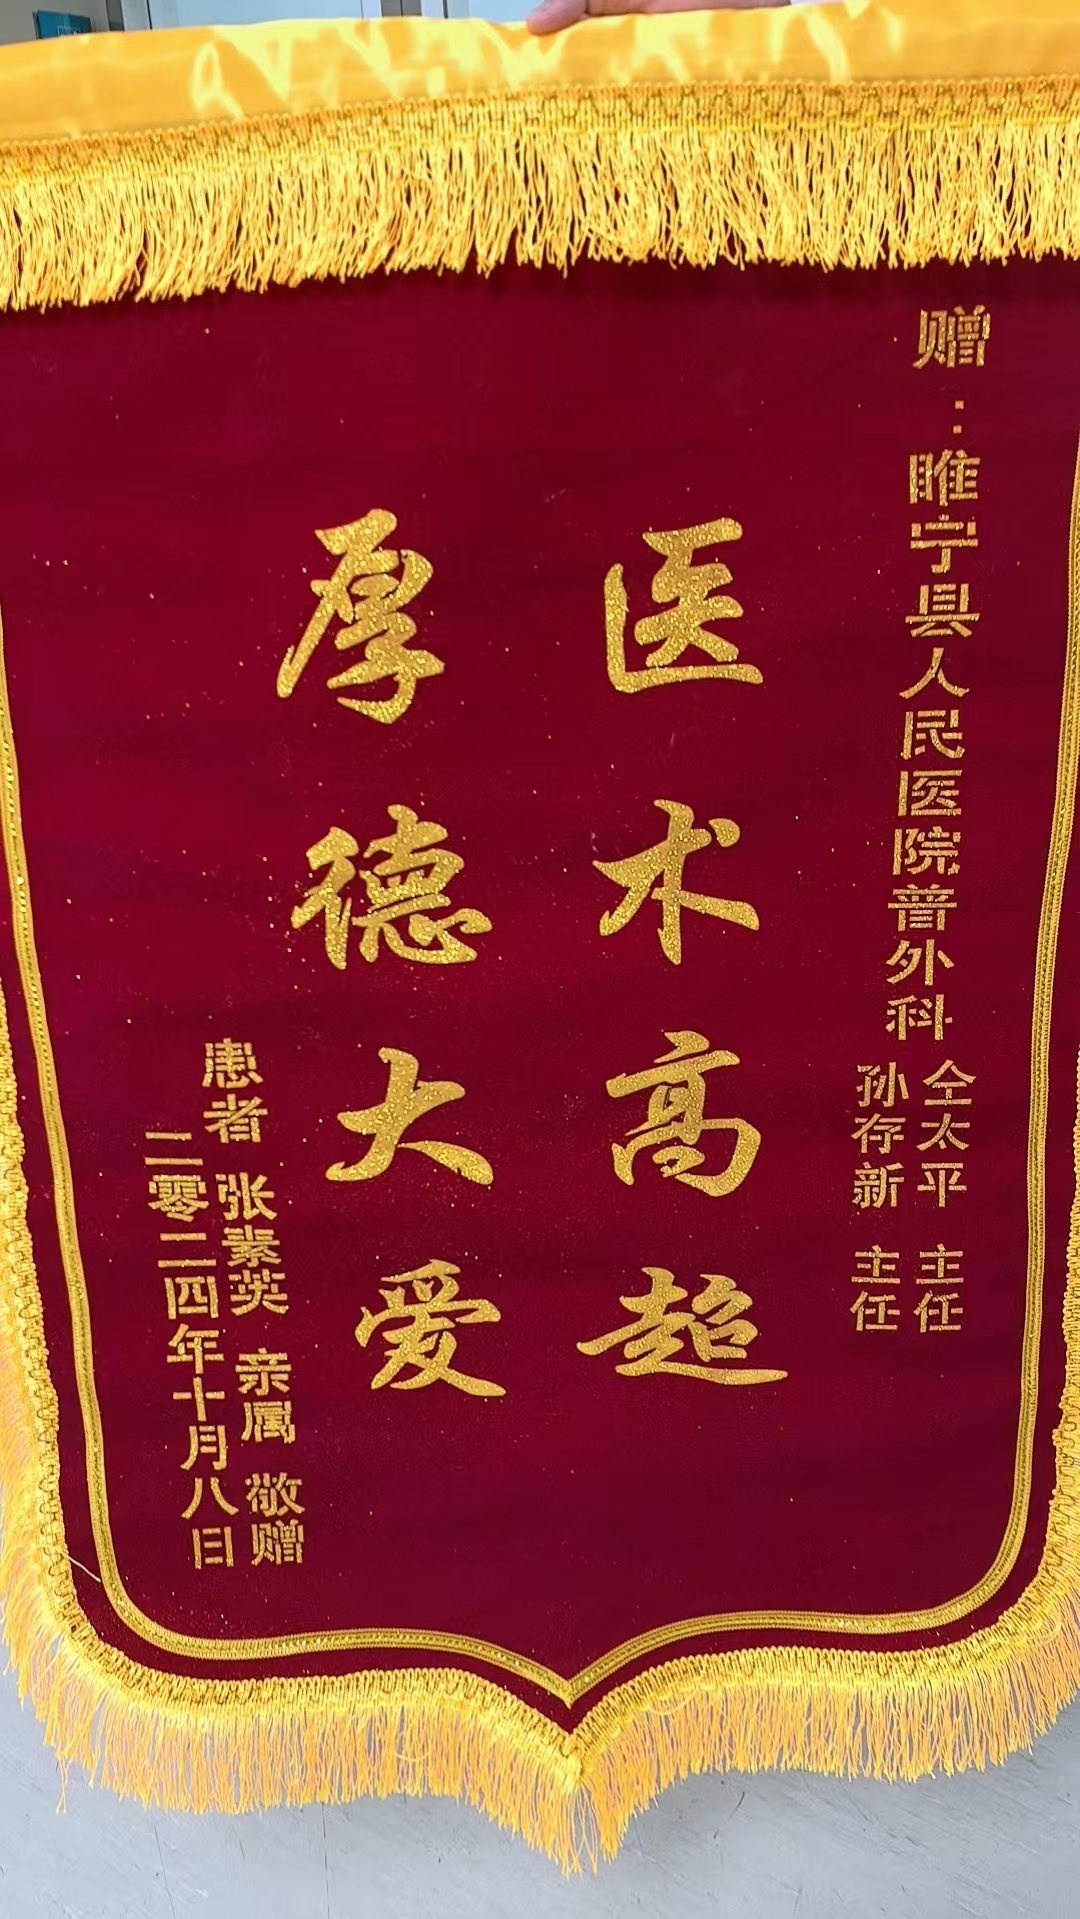 赠：睢宁县人民医院普外科
仝太平 主任
孙存新 主任
医术高超
厚德大爱
患者 张素英 亲属 敬赠
二零二四年十月八日